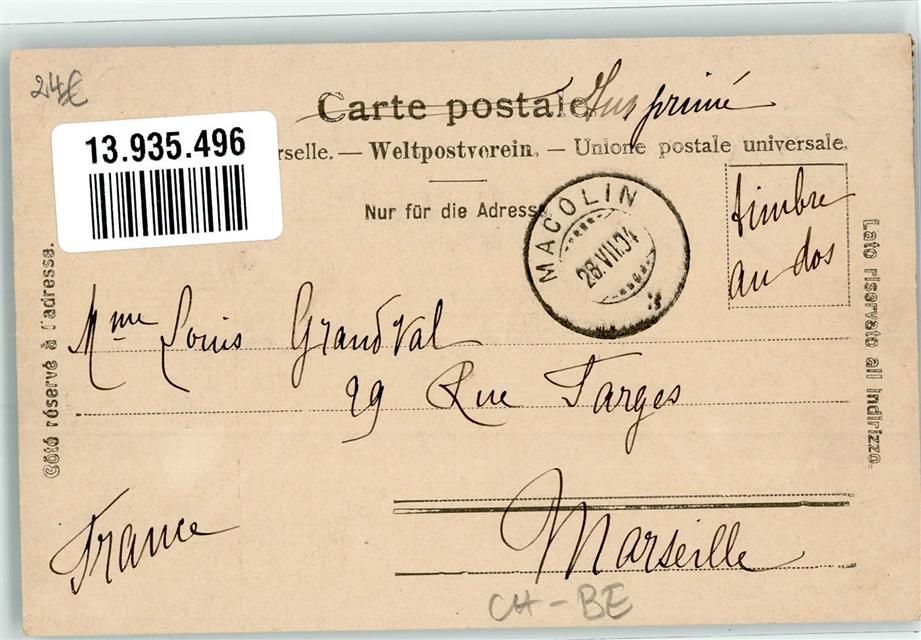 24€
Carte postale Imprimé
13.935.496
rselle. — Weltpostverein. — Unione postale universale.
Nur für die Adresse
MACOLIN
28.VIII.04
timbre
au dos
Côté réservé à l'adresse.
Lato riservato all indirizzo.
Mme Louis Grandval
29 Rue Farges
Marseille
France
CH-BE